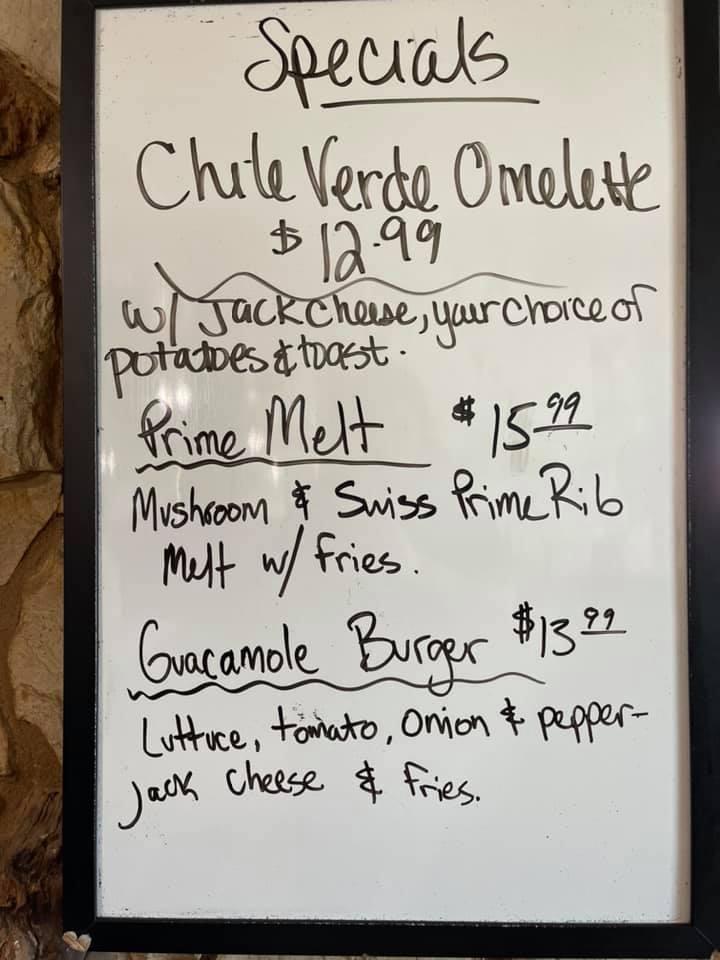 Specials
Chile Verde Omelette
$12.99
w/ Jack cheese, your choice of
potatoes & toast.
Prime Melt $15.99
Mushroom & Swiss Prime Rib
Melt w/ fries.
Guacamole Burger $13.99
Luttuce, tomato, onion & pepper-
jack cheese & fries.